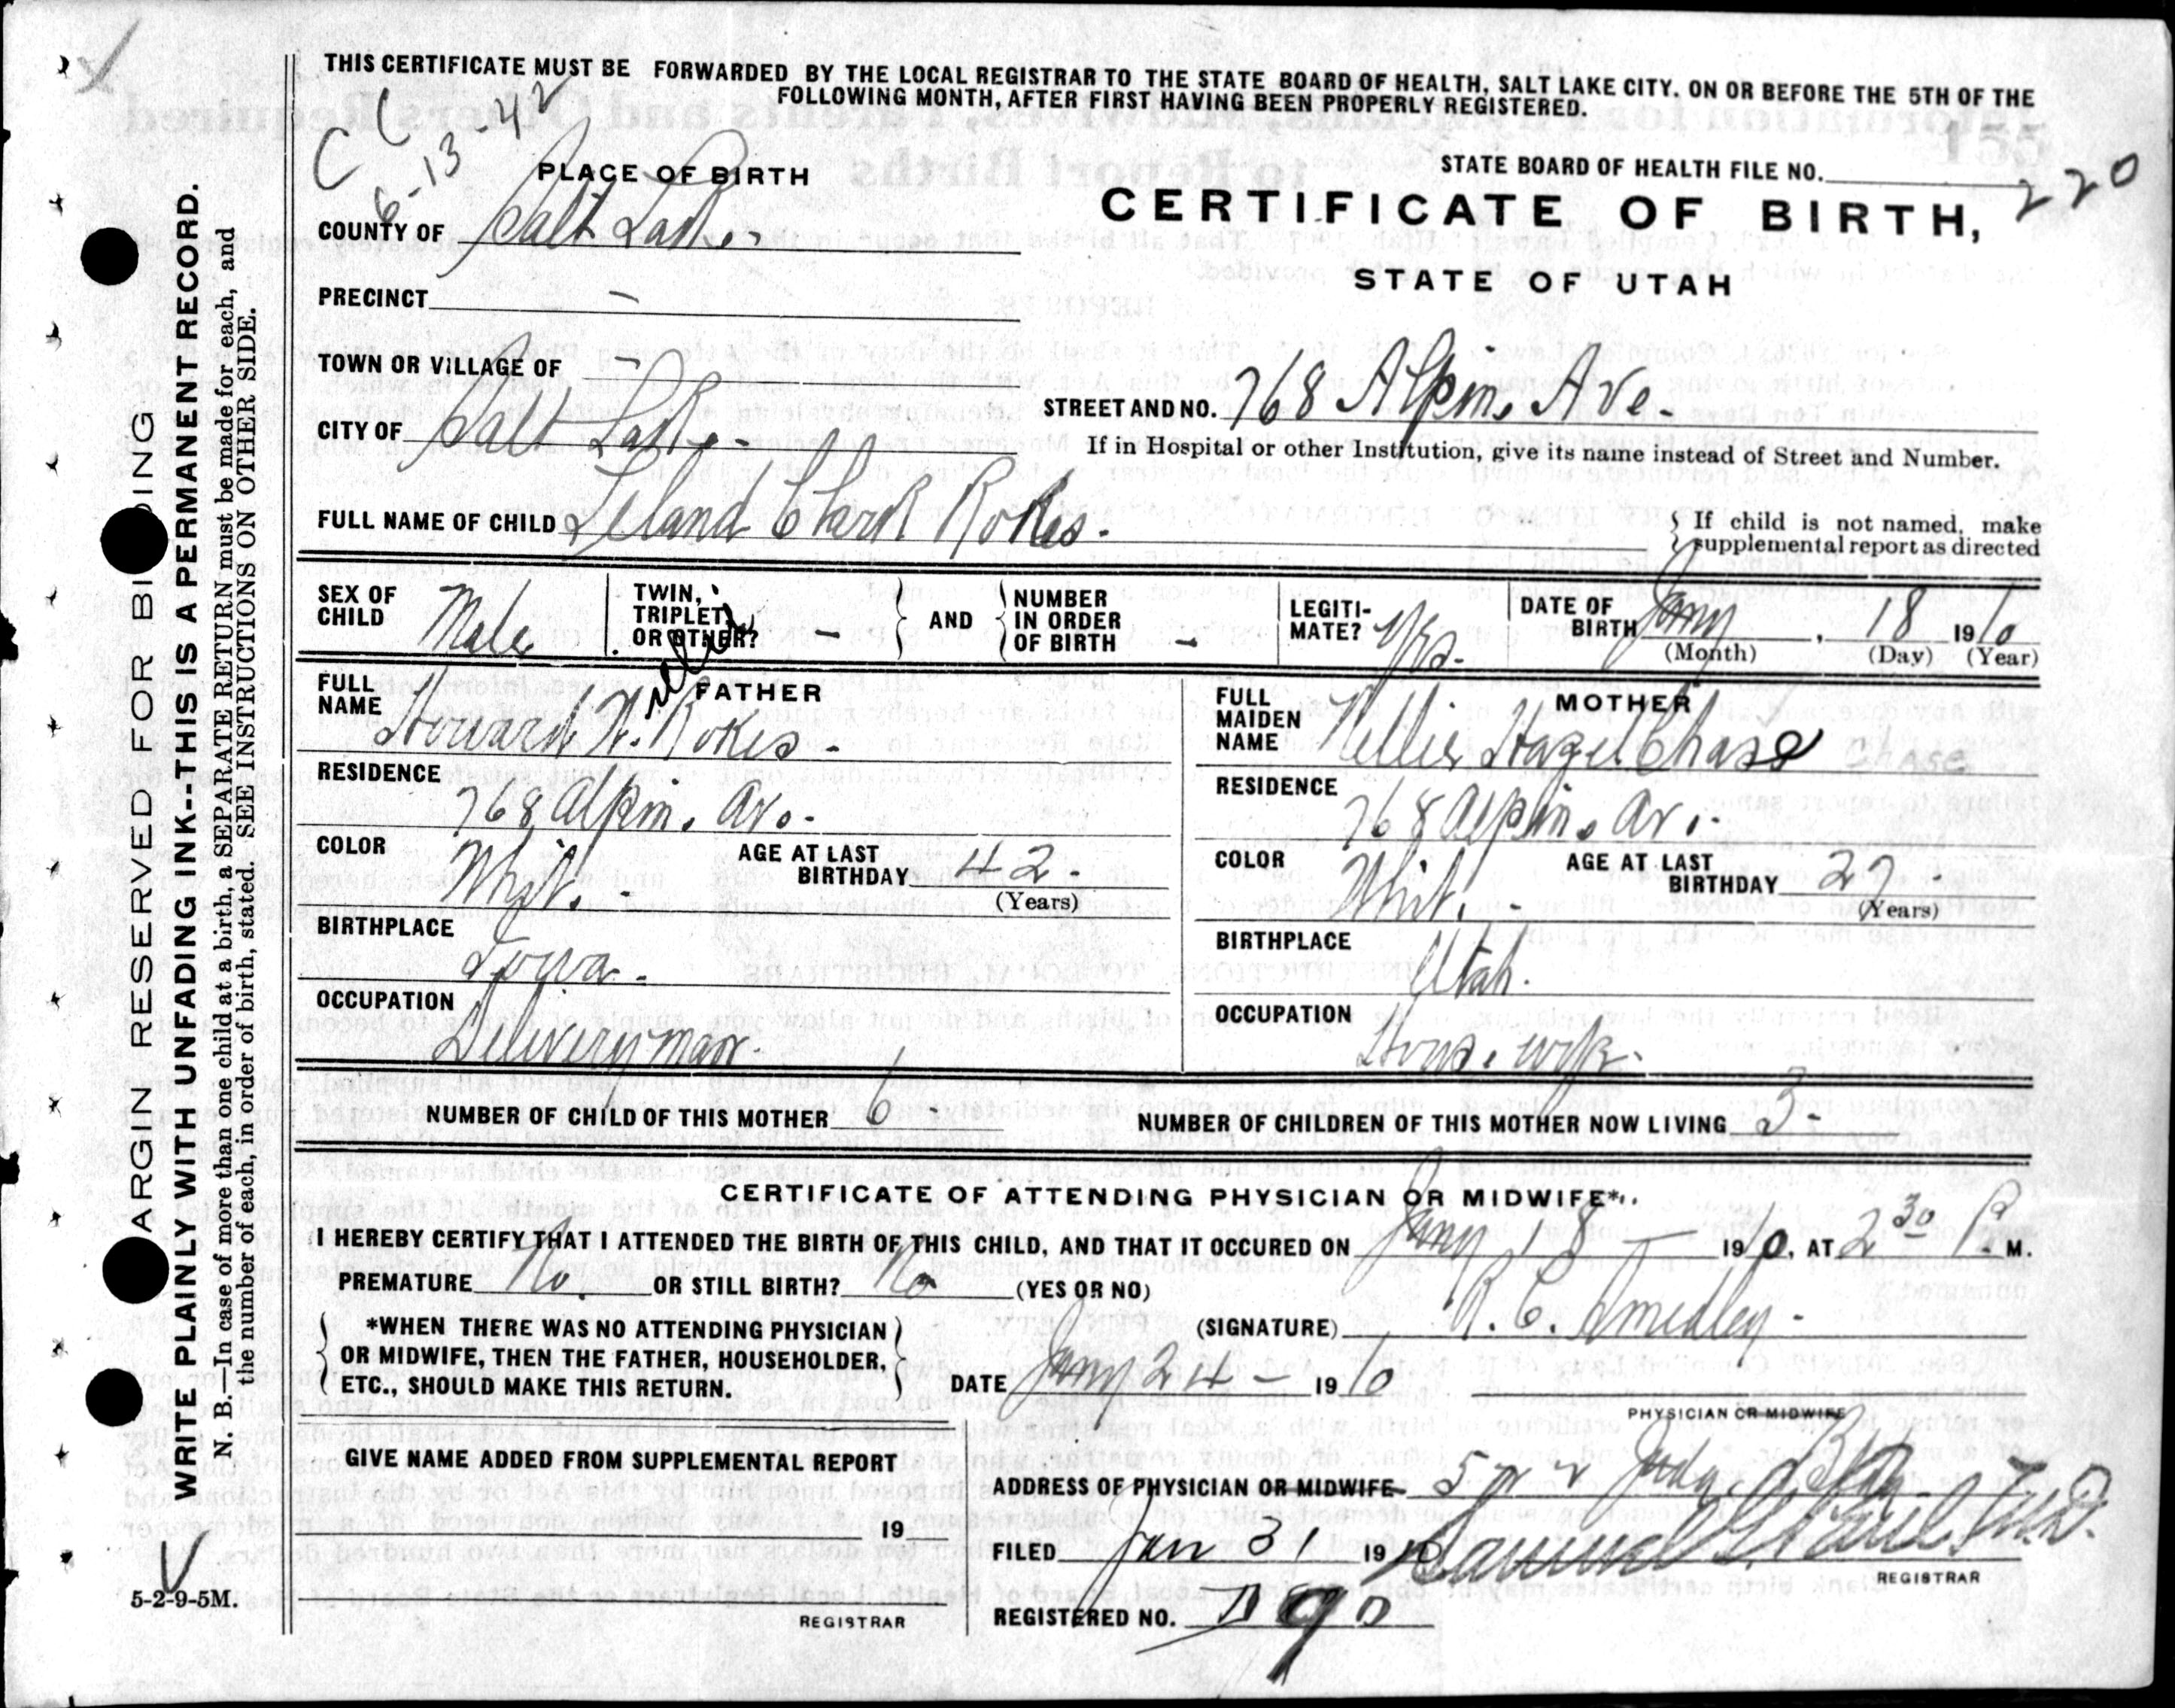 THIS CERTIFICATE MUST BE FORWARDED BY THE LOCAL REGISTRAR TO THE STATE BOARD OF HEALTH, SALT LAKE CITY, ON OR BEFORE THE 5TH OF THE
FOLLOWING MONTH, AFTER FIRST HAVING BEEN PROPERLY REGISTERED.
CC
6-13-42
PLACE OF BIRTH
STATE BOARD OF HEALTH FILE NO. 220
CERTIFICATE OF BIRTH,
STATE OF UTAH
COUNTY OF Salt Lake.
PRECINCT –
TOWN OR VILLAGE OF –
CITY OF Salt Lake -
STREET AND NO. 768 Alpine Ave.
If in Hospital or other Institution, give its name instead of Street and Number.
FULL NAME OF CHILD Leland Clark Rokes -
If child is not named, make
supplemental report as directed
SEX OF CHILD Male
TWIN, TRIPLET, OR OTHER? –
AND
NUMBER IN ORDER OF BIRTH -
LEGITIMATE? Yes.
DATE OF BIRTH Jany, 18 1910
(Month) (Day) (Year)
FATHER
FULL NAME Howard W. Rokes -
RESIDENCE 768 Alpine Ave. -
COLOR White. -
AGE AT LAST BIRTHDAY 42 -
(Years)
BIRTHPLACE Iowa. -
OCCUPATION Delivery man.
MOTHER
FULL MAIDEN NAME Nellie Hazel Chase CHASE
RESIDENCE 768 Alpine Ave. -
COLOR White. -
AGE AT LAST BIRTHDAY 27 -
(Years)
BIRTHPLACE Utah.
OCCUPATION House wife.
NUMBER OF CHILD OF THIS MOTHER 6 -
NUMBER OF CHILDREN OF THIS MOTHER NOW LIVING 3 -
CERTIFICATE OF ATTENDING PHYSICIAN OR MIDWIFE*
I HEREBY CERTIFY THAT I ATTENDED THE BIRTH OF THIS CHILD, AND THAT IT OCCURED ON Jany 18 – 1910, AT 2 30 P. M.
PREMATURE No. OR STILL BIRTH? No (YES OR NO)
*WHEN THERE WAS NO ATTENDING PHYSICIAN
OR MIDWIFE, THEN THE FATHER, HOUSEHOLDER,
ETC., SHOULD MAKE THIS RETURN.
(SIGNATURE) R. C. Smedley -
DATE Jany 24 - 1910
PHYSICIAN OR MIDWIFE
GIVE NAME ADDED FROM SUPPLEMENTAL REPORT
19
REGISTRAR
ADDRESS OF PHYSICIAN OR MIDWIFE Judge Bldg.
FILED Jan 31 1910 Samuel G. Paul M.D.
REGISTRAR
REGISTERED NO.
5-2-9-5M.
ARGIN RESERVED FOR BI DING
WRITE PLAINLY WITH UNFADING INK--THIS IS A PERMANENT RECORD.
N. B.—In case of more than one child at a birth, a SEPARATE RETURN must be made for each, and
the number of each, in order of birth, stated. SEE INSTRUCTIONS ON OTHER SIDE.